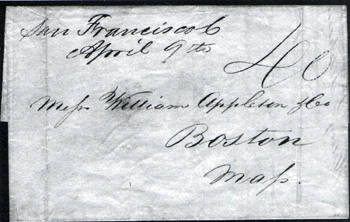 San Francisco C
April 9th
40
Mess. William Appleton & Co
Boston
Mass.